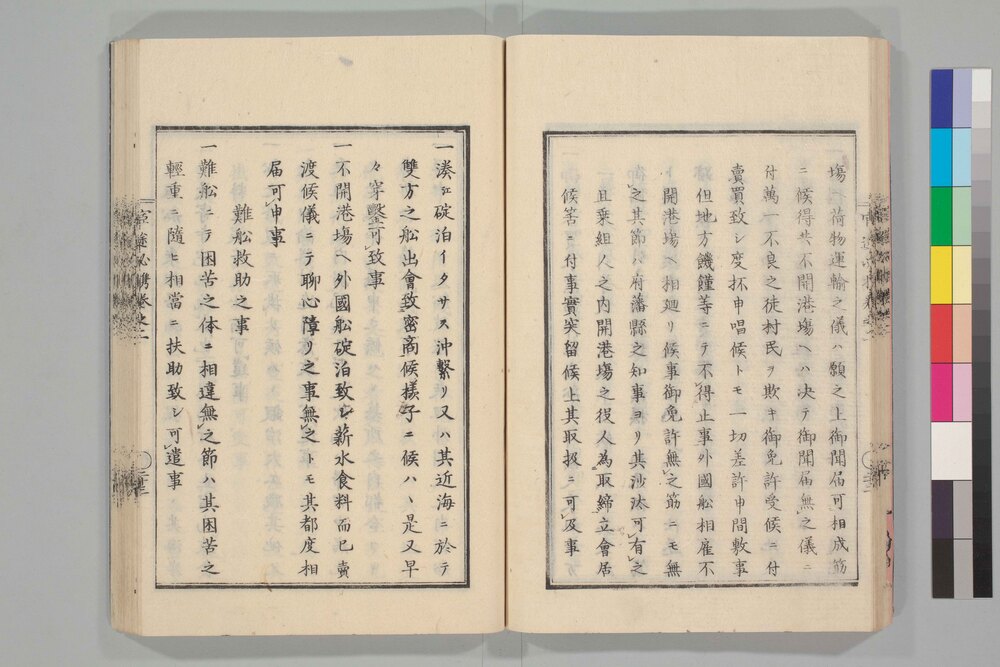 場ヨリ荷物運輸之儀ハ願之上御聞届可相成筋
ニ候得共不開港場ヘハ决テ御聞届無之儀ニ
付萬一不良之徒村民ヲ欺キ御免許受候ニ付
賣買致シ度抔申唱候トモ一切差許申間敷事
但地方饑饉等ニテ不得止事外國舩相雇不
開港場ヘ相廻リ候事御免許無之筋ニモ無
之其節ハ府藩縣之知事ヨリ其沙汰可有之
且乗組人之内開港場之役人為取締立會居
候筈ニ付事實突留候上其取扱ニ可及事
一湊江碇泊イタサス沖繋リ又ハ其近海ニ於テ
雙方之舩出會致密商候様子ニ候ハヽ是又早
々穿鑿可致事
一不開港場ヘ外國舩碇泊致シ薪水食料而已賣
渡候儀ニテ聊心障リ之事無之トモ其都度相
届可申事
難舩救助之事
一難舩ニテ困苦之体ニ相違無之節ハ其困苦之
輕重ニ隨ヒ相當ニ扶助致シ可遣事